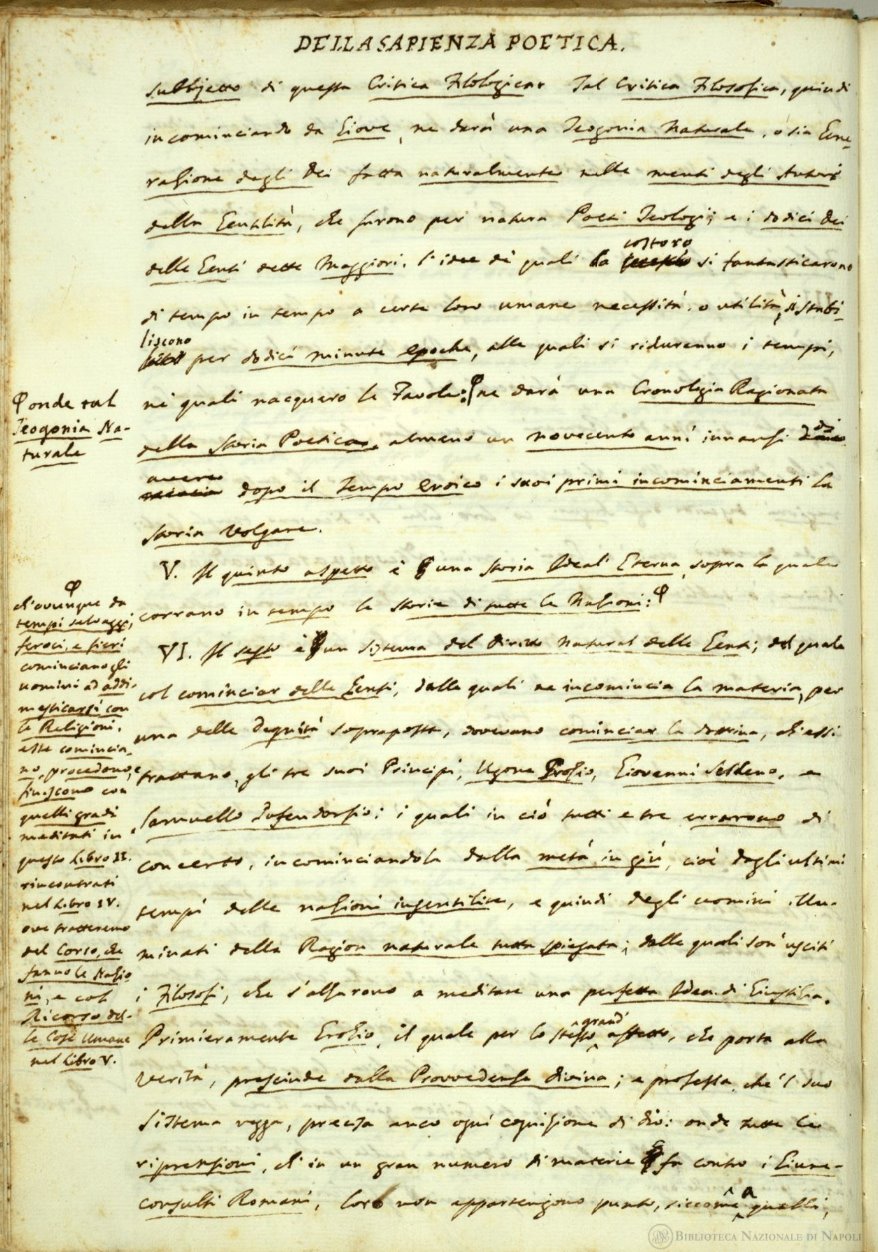 DELLA SAPIENZA POETICA.
subbjetto di questa Critica Filologica. Tal Critica Filosofica, quindi
incominciando da Giove, ne darà una Teogonia Naturale, o sia Gene-
razione degli Dei fatta naturalmente nelle menti degli Autori
della Gentilità, che furono per natura Poeti Teologi; e i dodici Dei
delle Genti dette Maggiori, l'idee de' quali da
costoro
si fantasticarono
di tempo in tempo a certe loro umane necessità, o utilità, si stabi-
liscono
per dodici minute epoche, alle quali si riduranno i tempi,
ne' quali nacquero le Favole: ne darà una Cronologia Ragionata
della Storia Poetica, almeno un novecento anni innanzi di
avere
dopo il Tempo eroico i suoi primi incominciamenti la
Storia Volgare.
V. Il quinto aspetto è una Storia Ideal' Eterna, sopra la quale
corrano in tempo le storie di tutte le Nazioni:
VI. Il sesto è un sistema del Diritto Natural delle Genti; del quale
col cominciar delle Genti, dalle quali ne incomincia la materia, per
una delle Degnità sopraposte, dovevano cominciar la dottrina, ch'essi
trattano, gli tre suoi Principi, Ugone Grozio, Giovanni Seldeno, e
Samuello Pufendorfio; i quali in ciò tutti e tre errarono di
concerto, incominciandola dalla metà in giù, cioè dagli ultimi
tempi delle nazioni ingentilite, e quindi degli uomini illu-
minati della Ragion naturale tutta spiegata; dalle quali son' usciti
i Filosofi, che s'alzarono a meditare una perfetta Idea di Giustizia.
Primieramente Grozio, il quale per lo stesso
grand'
affetto, che porta alla
verità, prescinde dalla Provvedenza divina; e professa, che 'l suo
Sistema regga, precisa anco ogni cognizione di Dio: onde tutte le
riprensioni, ch' in un gran numero di materie fa contro i Giure-
consulti Romani, loro non appartengono punto, siccome a quelli,
onde tal
Teogonia Na-
turale
ch'ovunque da
tempi selvaggi,
feroci, e fieri
cominciano gli
uomini ad addi-
mesticarsi con
le Religioni,
esse comincia-
no, procedono, e
finiscono con
quelli gradi
meditati in
questo Libro II.
rincontrati
nel Libro IV.
ove tratteremo
del Corso, che
fanno le Nazio
ni, e col
Ricorso del-
le Cose Umane
nel Libro V.
BIBLIOTECA NAZIONALE DI NAPOLI